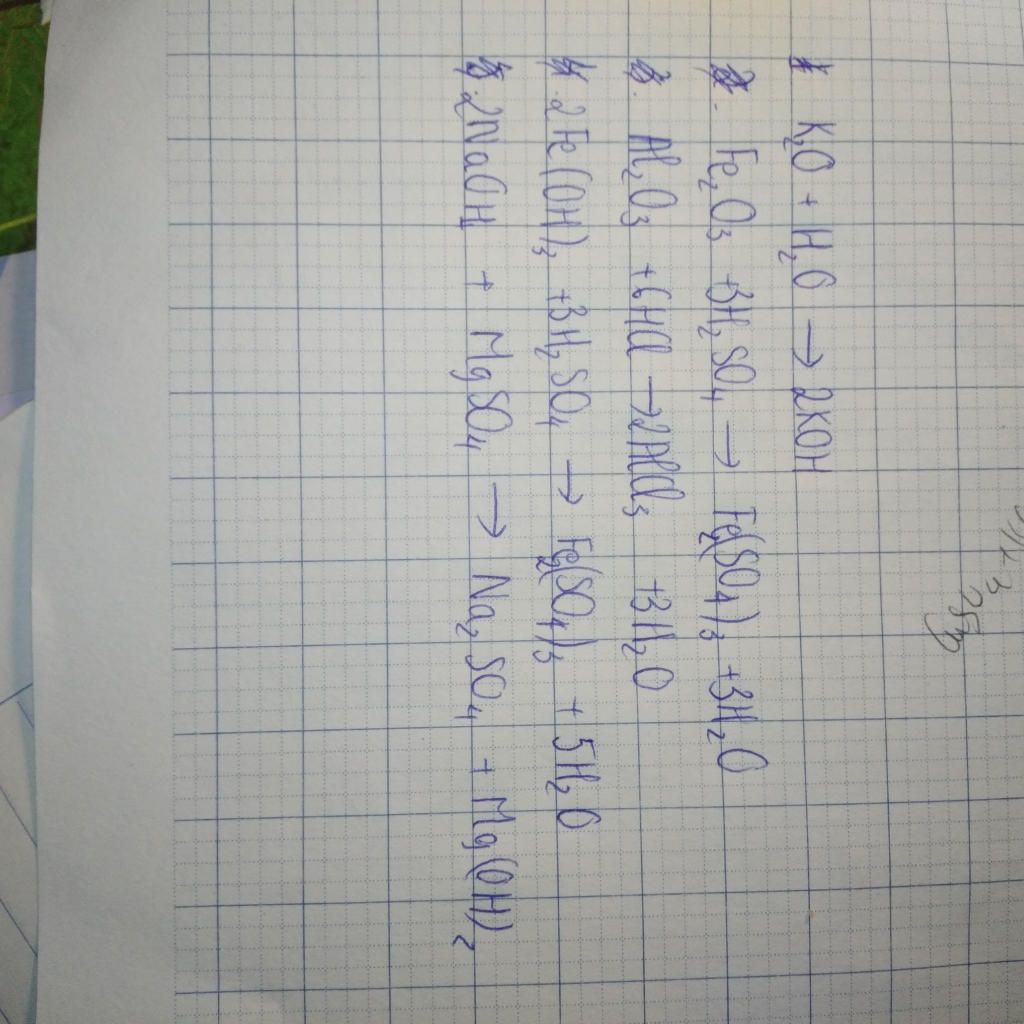 1 K₂O + H₂O → 2KOH
2. Fe₂O₃ + 3H₂SO₄ → Fe₂(SO₄)₃ + 3H₂O
3. Al₂O₃ + 6HCl → 2AlCl₃ + 3H₂O
4. 2Fe(OH)₃ + 3H₂SO₄ → Fe₂(SO₄)₃ + 5H₂O
5. 2NaOH + MgSO₄ → Na₂SO₄ + Mg(OH)₂